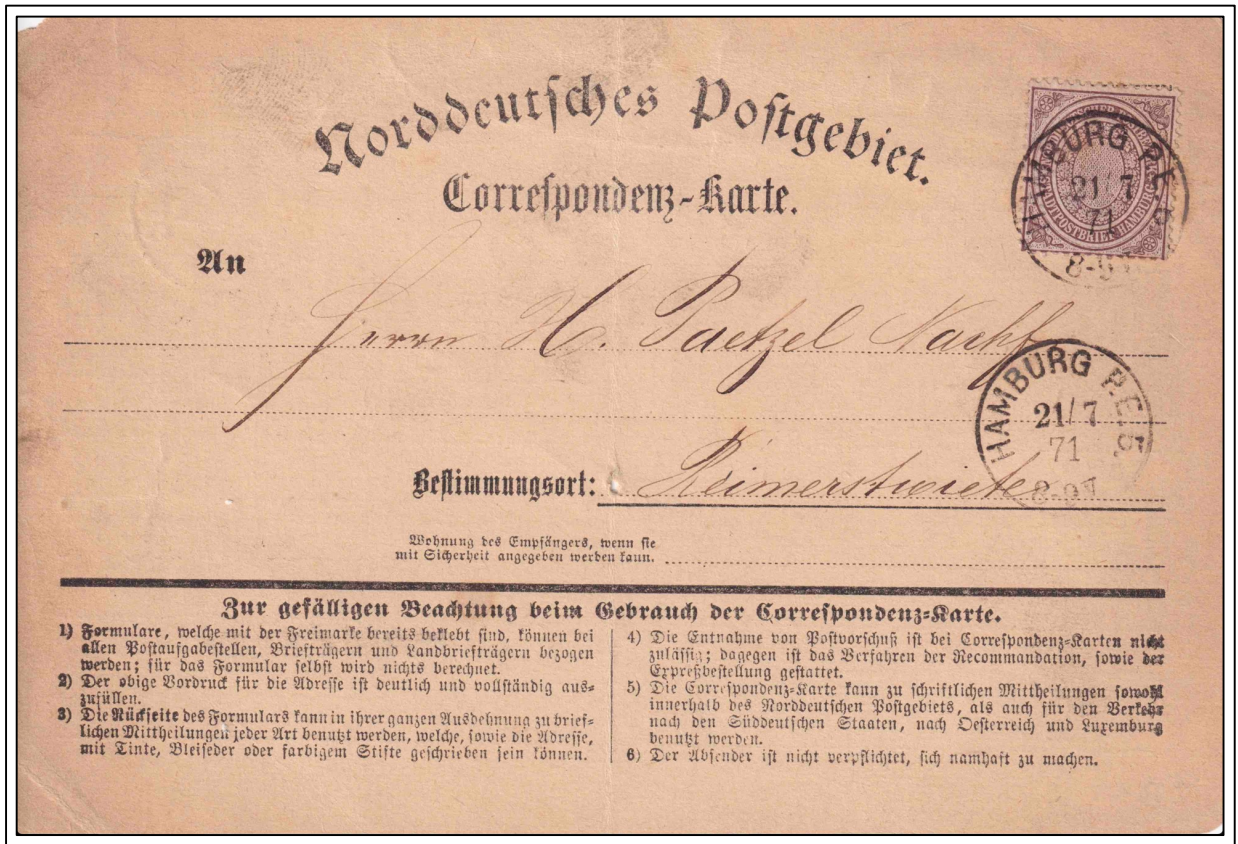 Norddeutsches Postgebiet.
Correspondenz-Karte.
HAMBURG P.E.5
21/7
71
8-9V
STADTPOSTBRIEF HAMBURG
An
Herrn H. Paetzel Nachf
HAMBURG P.E.5.
21/7
71
8-9V
Bestimmungsort: Reimerstwiete
Wohnung des Empfängers, wenn sie
mit Sicherheit angegeben werden kann.
Zur gefälligen Beachtung beim Gebrauch der Correspondenz-Karte.
1) Formulare, welche mit der Freimarke bereits beklebt sind, können bei
allen Postaufgabestellen, Briefträgern und Landbriefträgern bezogen
werden; für das Formular selbst wird nichts berechnet.
2) Der obige Vordruck für die Adresse ist deutlich und vollständig aus-
zufüllen.
3) Die Rückseite des Formulars kann in ihrer ganzen Ausdehnung zu brief-
lichen Mittheilungen jeder Art benutzt werden, welche, sowie die Adresse,
mit Tinte, Bleifeder oder farbigem Stifte geschrieben sein können.
4) Die Entnahme von Postvorschuß ist bei Correspondenz-Karten nicht
zulässig; dagegen ist das Verfahren der Recommandation, sowie der
Expreßbestellung gestattet.
5) Die Correspondenz-Karte kann zu schriftlichen Mittheilungen sowohl
innerhalb des Norddeutschen Postgebiets, als auch für den Verkehr
nach den Süddeutschen Staaten, nach Oesterreich und Luxemburg
benutzt werden.
6) Der Absender ist nicht verpflichtet, sich namhaft zu machen.